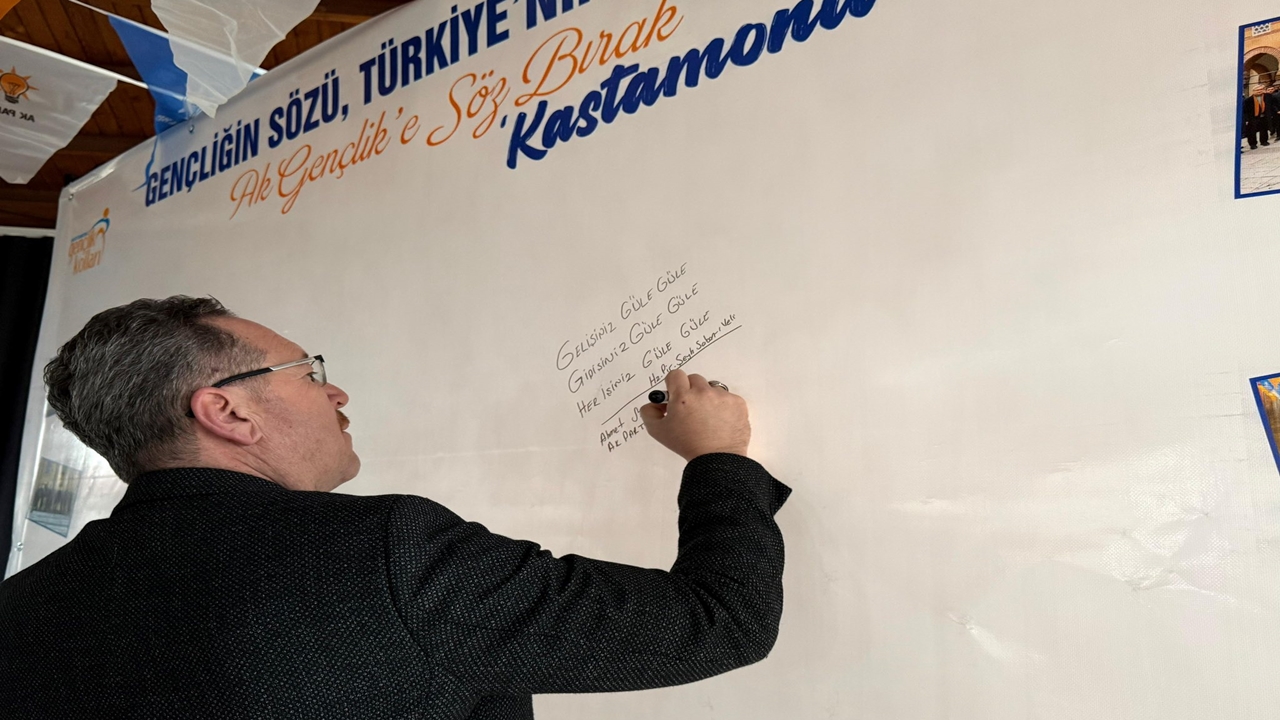 AK PA
GENÇLİĞİN SÖZÜ, TÜRKİYE'Nİ
Ak Gençlik'e Söz Bırak
Kastamonu
gençlik
kolları
GELİŞİNİZ GÜLE GÜLE
GİDİŞİNİZ GÜLE GÜLE
HER İŞİNİZ GÜLE GÜLE
Hz. Pir Şeyh Şaban-ı Veli
Ahmet
AK PART